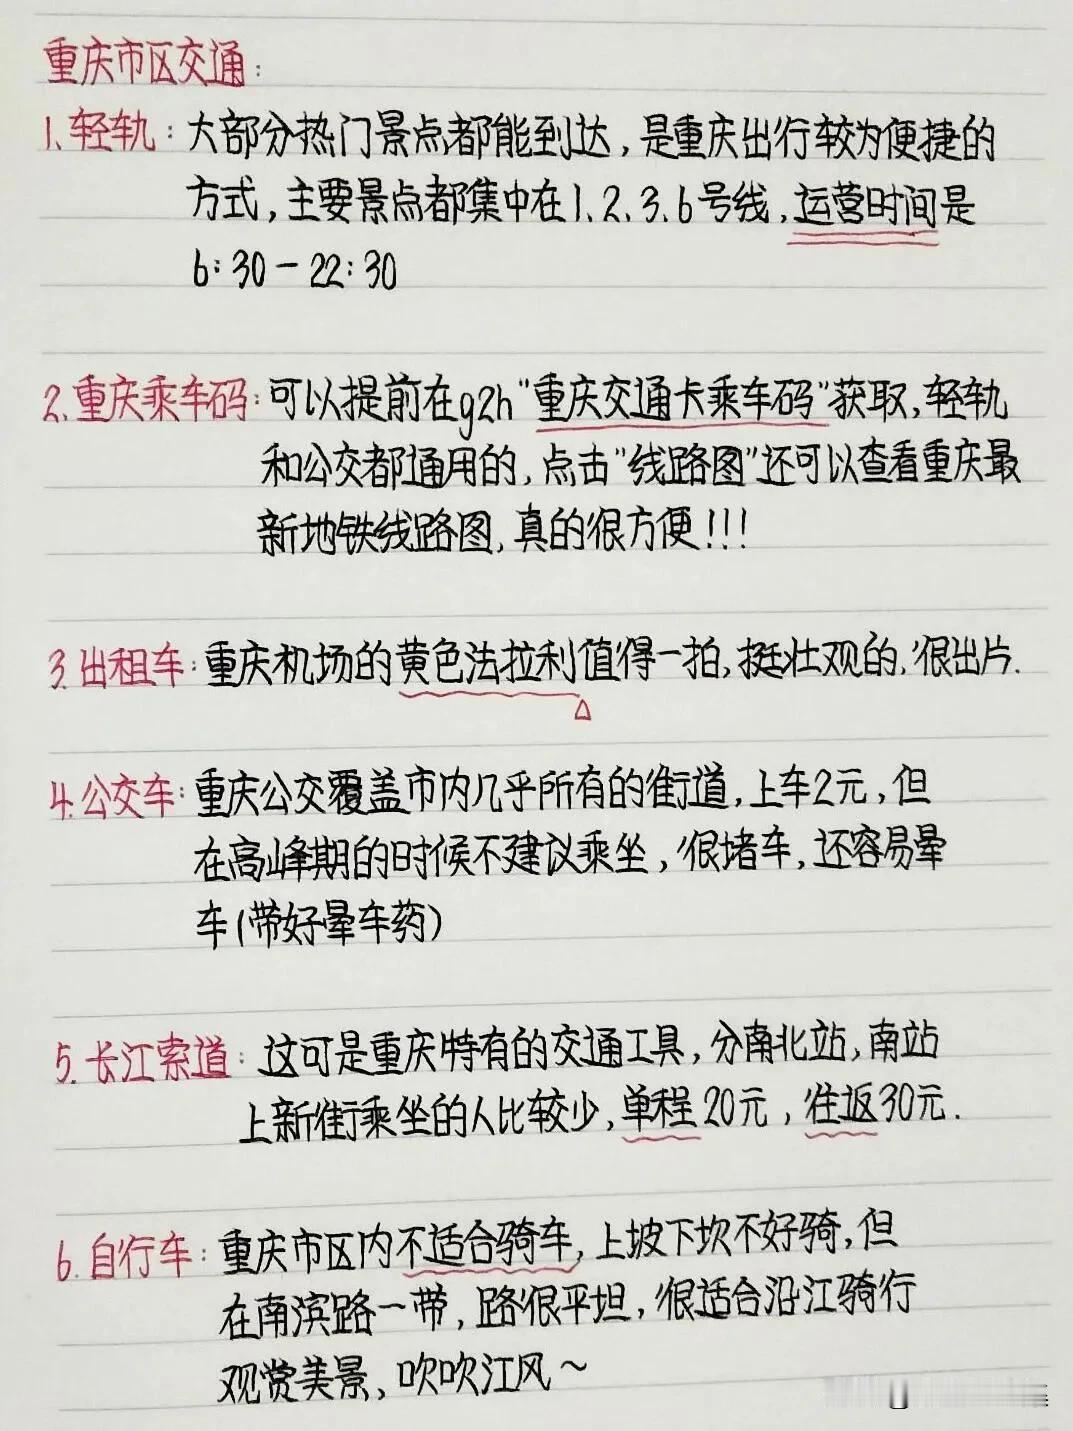 重庆市区交通：
1.轻轨：大部分热门景点都能到达，是重庆出行较为便捷的
方式，主要景点都集中在1.2.3.6号线，运营时间是
6：30－22：30
2.重庆乘车码：可以提前在gzh"重庆交通卡乘车码"获取，轻轨
和公交都通用的，点击"线路图"还可以查看重庆最
新地铁线路图，真的很方便!!!
3.出租车：重庆机场的黄色法拉利值得一拍，挺壮观的，很出片.
4.公交车：重庆公交覆盖市内几乎所有的街道，上车2元，但
在高峰期的时候不建议乘坐，很堵车，还容易晕
车(带好晕车药)
5.长江索道：这可是重庆特有的交通工具，分南北站，南站
上新街乘坐的人比较少，单程20元，往返30元.
6.自行车：重庆市区内不适合骑车，上坡下坎不好骑，但
在南滨路一带，路很平坦，很适合沿江骑行
观赏美景，吹吹江风～